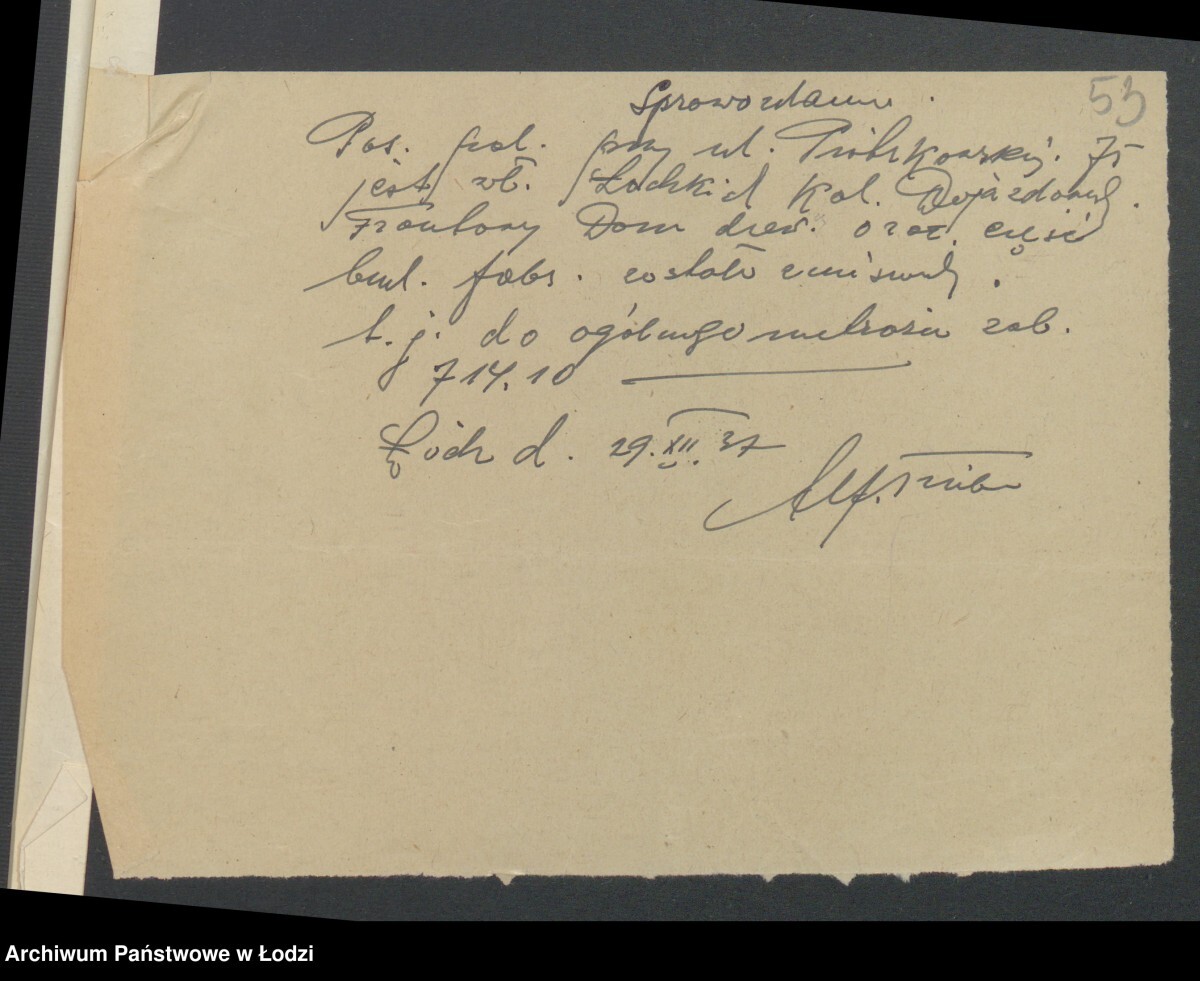 53
Sprawozdanie.
Pos. poł. przy ul. Piotrkowskiej. 75
jest wł. Łódzkich Kol. Dojazdowych.
Frontowy Dom drew. oraz część
bud. fabr. zostało zniszczo.
t. j. do ogólnego metrażu zab.
714.10
Łódź d. 29. XII. 37
Alf.
Archiwum Państwowe w Łodzi